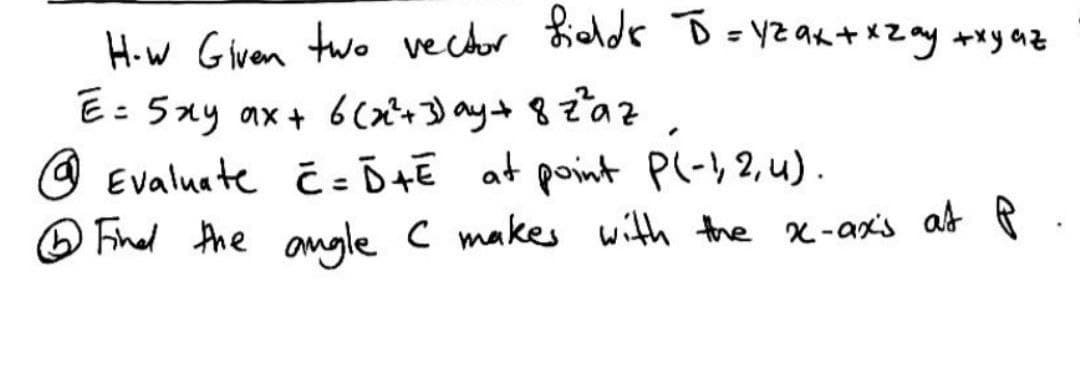 H.w Given two vector fields D̅ = yz ax + xz ay + xy az
E̅ = 5xy ax + 6(x²+3) ay + 8z²az
ⓐ Evaluate C̅ = D̅+E̅ at point P(-1, 2, 4).
ⓑ Find the angle C makes with the x-axis at P.